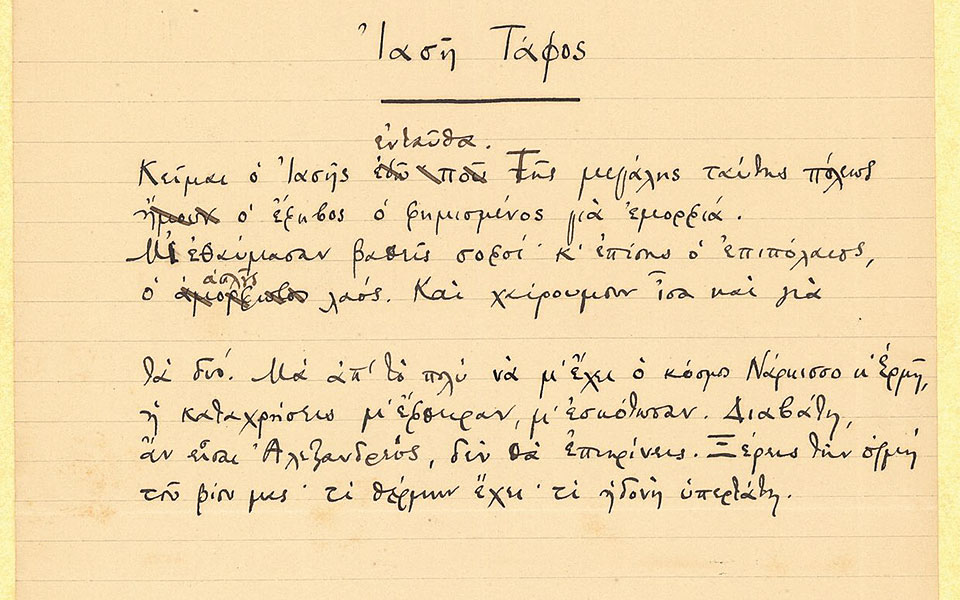 Ἰασῆ Τάφος
ἐνταῦθα.
Κεῖμαι ὁ Ἰασῆς ἐδῶ ποῦ Τῆς μεγάλης ταύτης πόλεως
ἤμουν ὁ ἔφηβος ὁ φημισμένος γιὰ ἐμορφιά.
Μ' ἐθαύμασαν βαθεῖς σοφοί· κ' ἐπίσης ὁ ἐπιπόλαιος,
ἁπλῆς
ὁ λαός. Καὶ χαίρουμουν ἴσα καὶ γιὰ
τὰ δυό. Μὰ ἀπ' τὸ πολὺ νὰ μ' ἔχει ὁ κόσμος Νάρκισσο κ' Ἑρμῆ,
ἡ καταχρήσεις μ' ἔφθειραν, μ' ἐσκότωσαν. Διαβάτη,
ἂν εἶσαι Ἀλεξανδρεύς, δὲν θὰ ἐπικρίνεις. Ξέρεις τὴν ὁρμὴ
τοῦ βίου μας· τί θέρμην ἔχει· τί ἡδονὴ ὑπερτάτη.